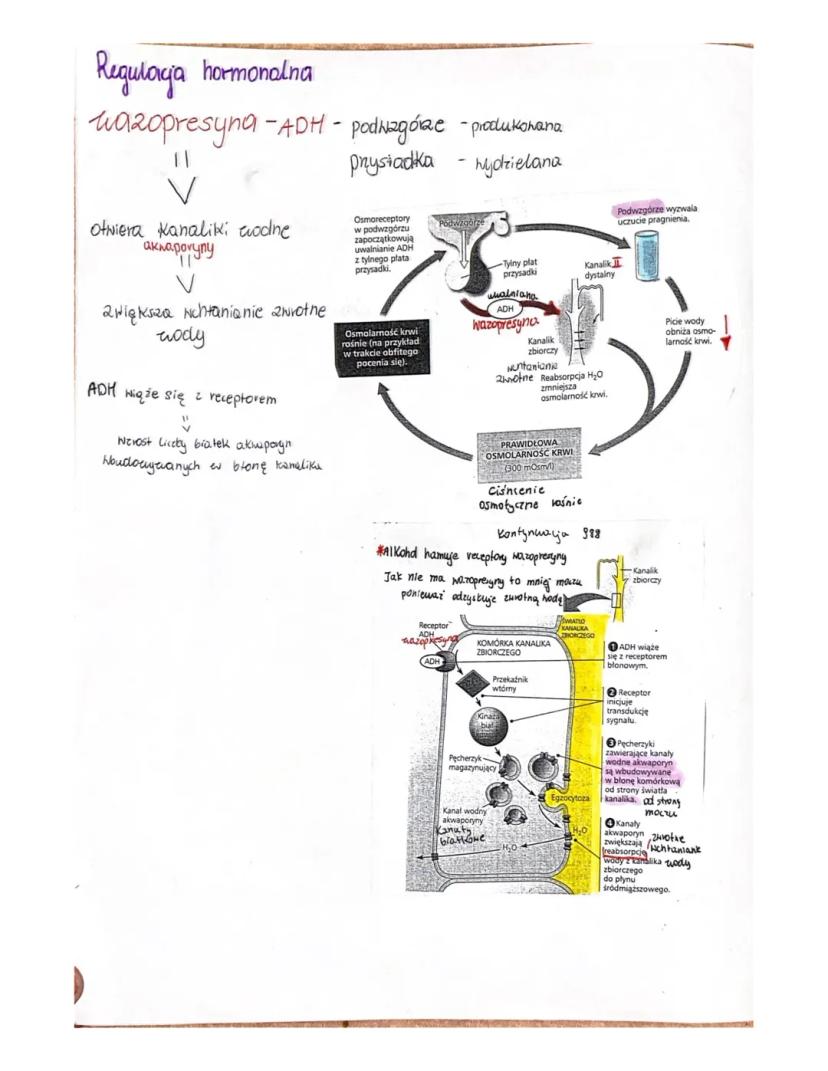 Regulacja hormonalna
wazopresyna - ADH - podwzgórze - produkowana
przysadka - wydzielana
otwiera kanaliki wodne
akwaporyny
zwiększa wchłanianie zwrotne
wody
ADH wiąże się z receptorem
wzrost liczby białek akwaporyn
wbudowywanych w błonę kanalika
Osmoreceptory
w podwzgórzu
zapoczątkowują
uwalnianie ADH
z tylnego płata
przysadki.
Podwzgórze
Tylny płat
przysadki
uwalniana
ADH
wazopresyna
Podwzgórze wyzwala
uczucie pragnienia.
Kanalik II
dystalny
Kanalik
zbiorczy
wchłanianie
zwrotne Reabsorpcja H₂O
zmniejsza
osmolarność krwi.
Picie wody
obniża osmo-
larność krwi.
Osmolarność krwi
rośnie (na przykład
w trakcie obfitego
pocenia się).
PRAWIDŁOWA
OSMOLARNOŚĆ KRWI
(300 mOsm/l)
Ciśnienie
osmotyczne rośnie
Kontynuacja 988
*Alkohol hamuje receptory wazopresyny
Jak nie ma wazopresyny to mniej moczu
ponieważ odzyskuje zwrotną wodę
Kanalik
zbiorczy
Receptor
ADH
wazopresyna
ADH
KOMÓRKA KANALIKA
ZBIORCZEGO
ŚWIATŁO
KANALIKA
ZBIORCZEGO
Przekaźnik
wtórny
Kinaza
biał.
Pęcherzyk
magazynujący
Egzocytoza
Kanał wodny
akwaporyny
Kanały
białkowe
H₂O
H₂O
1 ADH wiąże
się z receptorem
błonowym.
2 Receptor
inicjuje
transdukcję
sygnału.
3 Pęcherzyki
zawierające kanały
wodne akwaporyn
są wbudowywane
w błonę komórkową
od strony światła
kanalika. od strony
moczu
4 Kanały
akwaporyn
zwiększają zwrotne
reabsorpcję wchłanianie
wody z kanalika wody
zbiorczego
do płynu
śródmiąższowego.